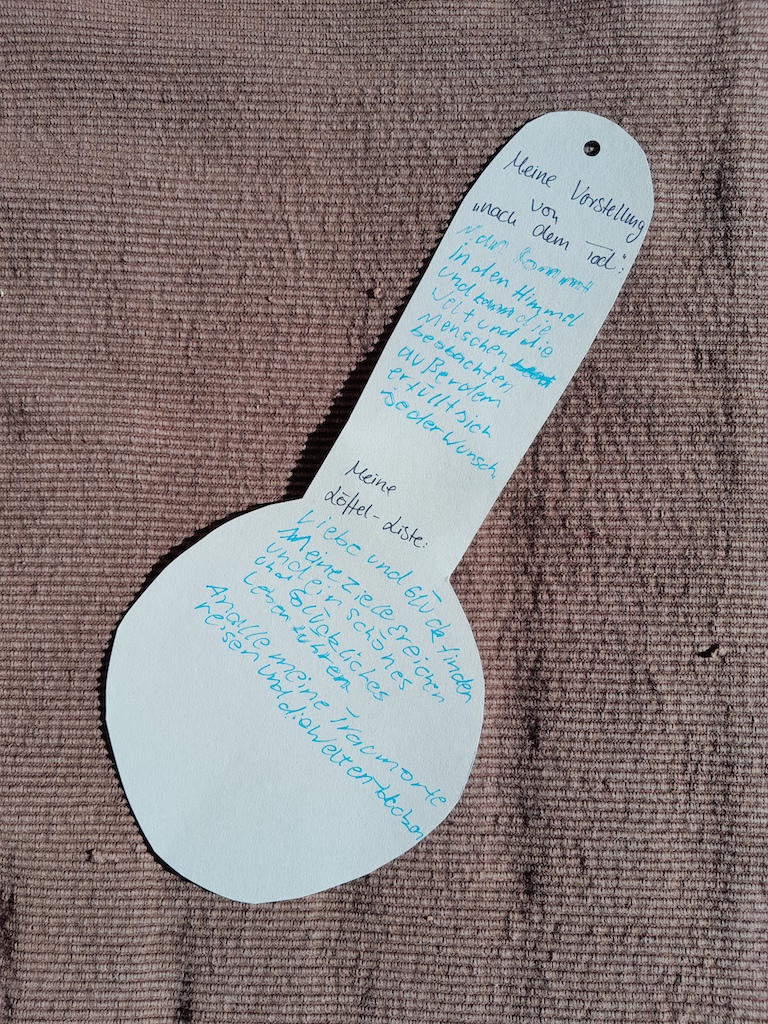 Meine Vorstellung
von
„nach dem Tod":
Man kommt
in den Himmel
und kann die
Welt und die
Menschen
beobachten
außerdem
erfüllt sich
jeder Wunsch.
Meine
Löffel-Liste:
Liebe und Glück finden
Meine ziele ereichen
und ein schönes
und Glückliches
Leben führen
An alle meine Traumorte
reisen und die Welt entdecken